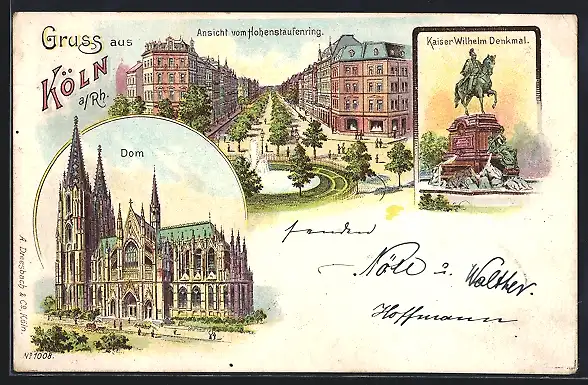 Gruss aus
KÖLN
a/Rh.
Ansicht vom Hohenstaufenring.
Kaiser-Wilhelm Denkmal.
Dom
senden
Nöle u. Walther.
Hoffmann
A. Dreesbach & Co. Köln.
No 1008.